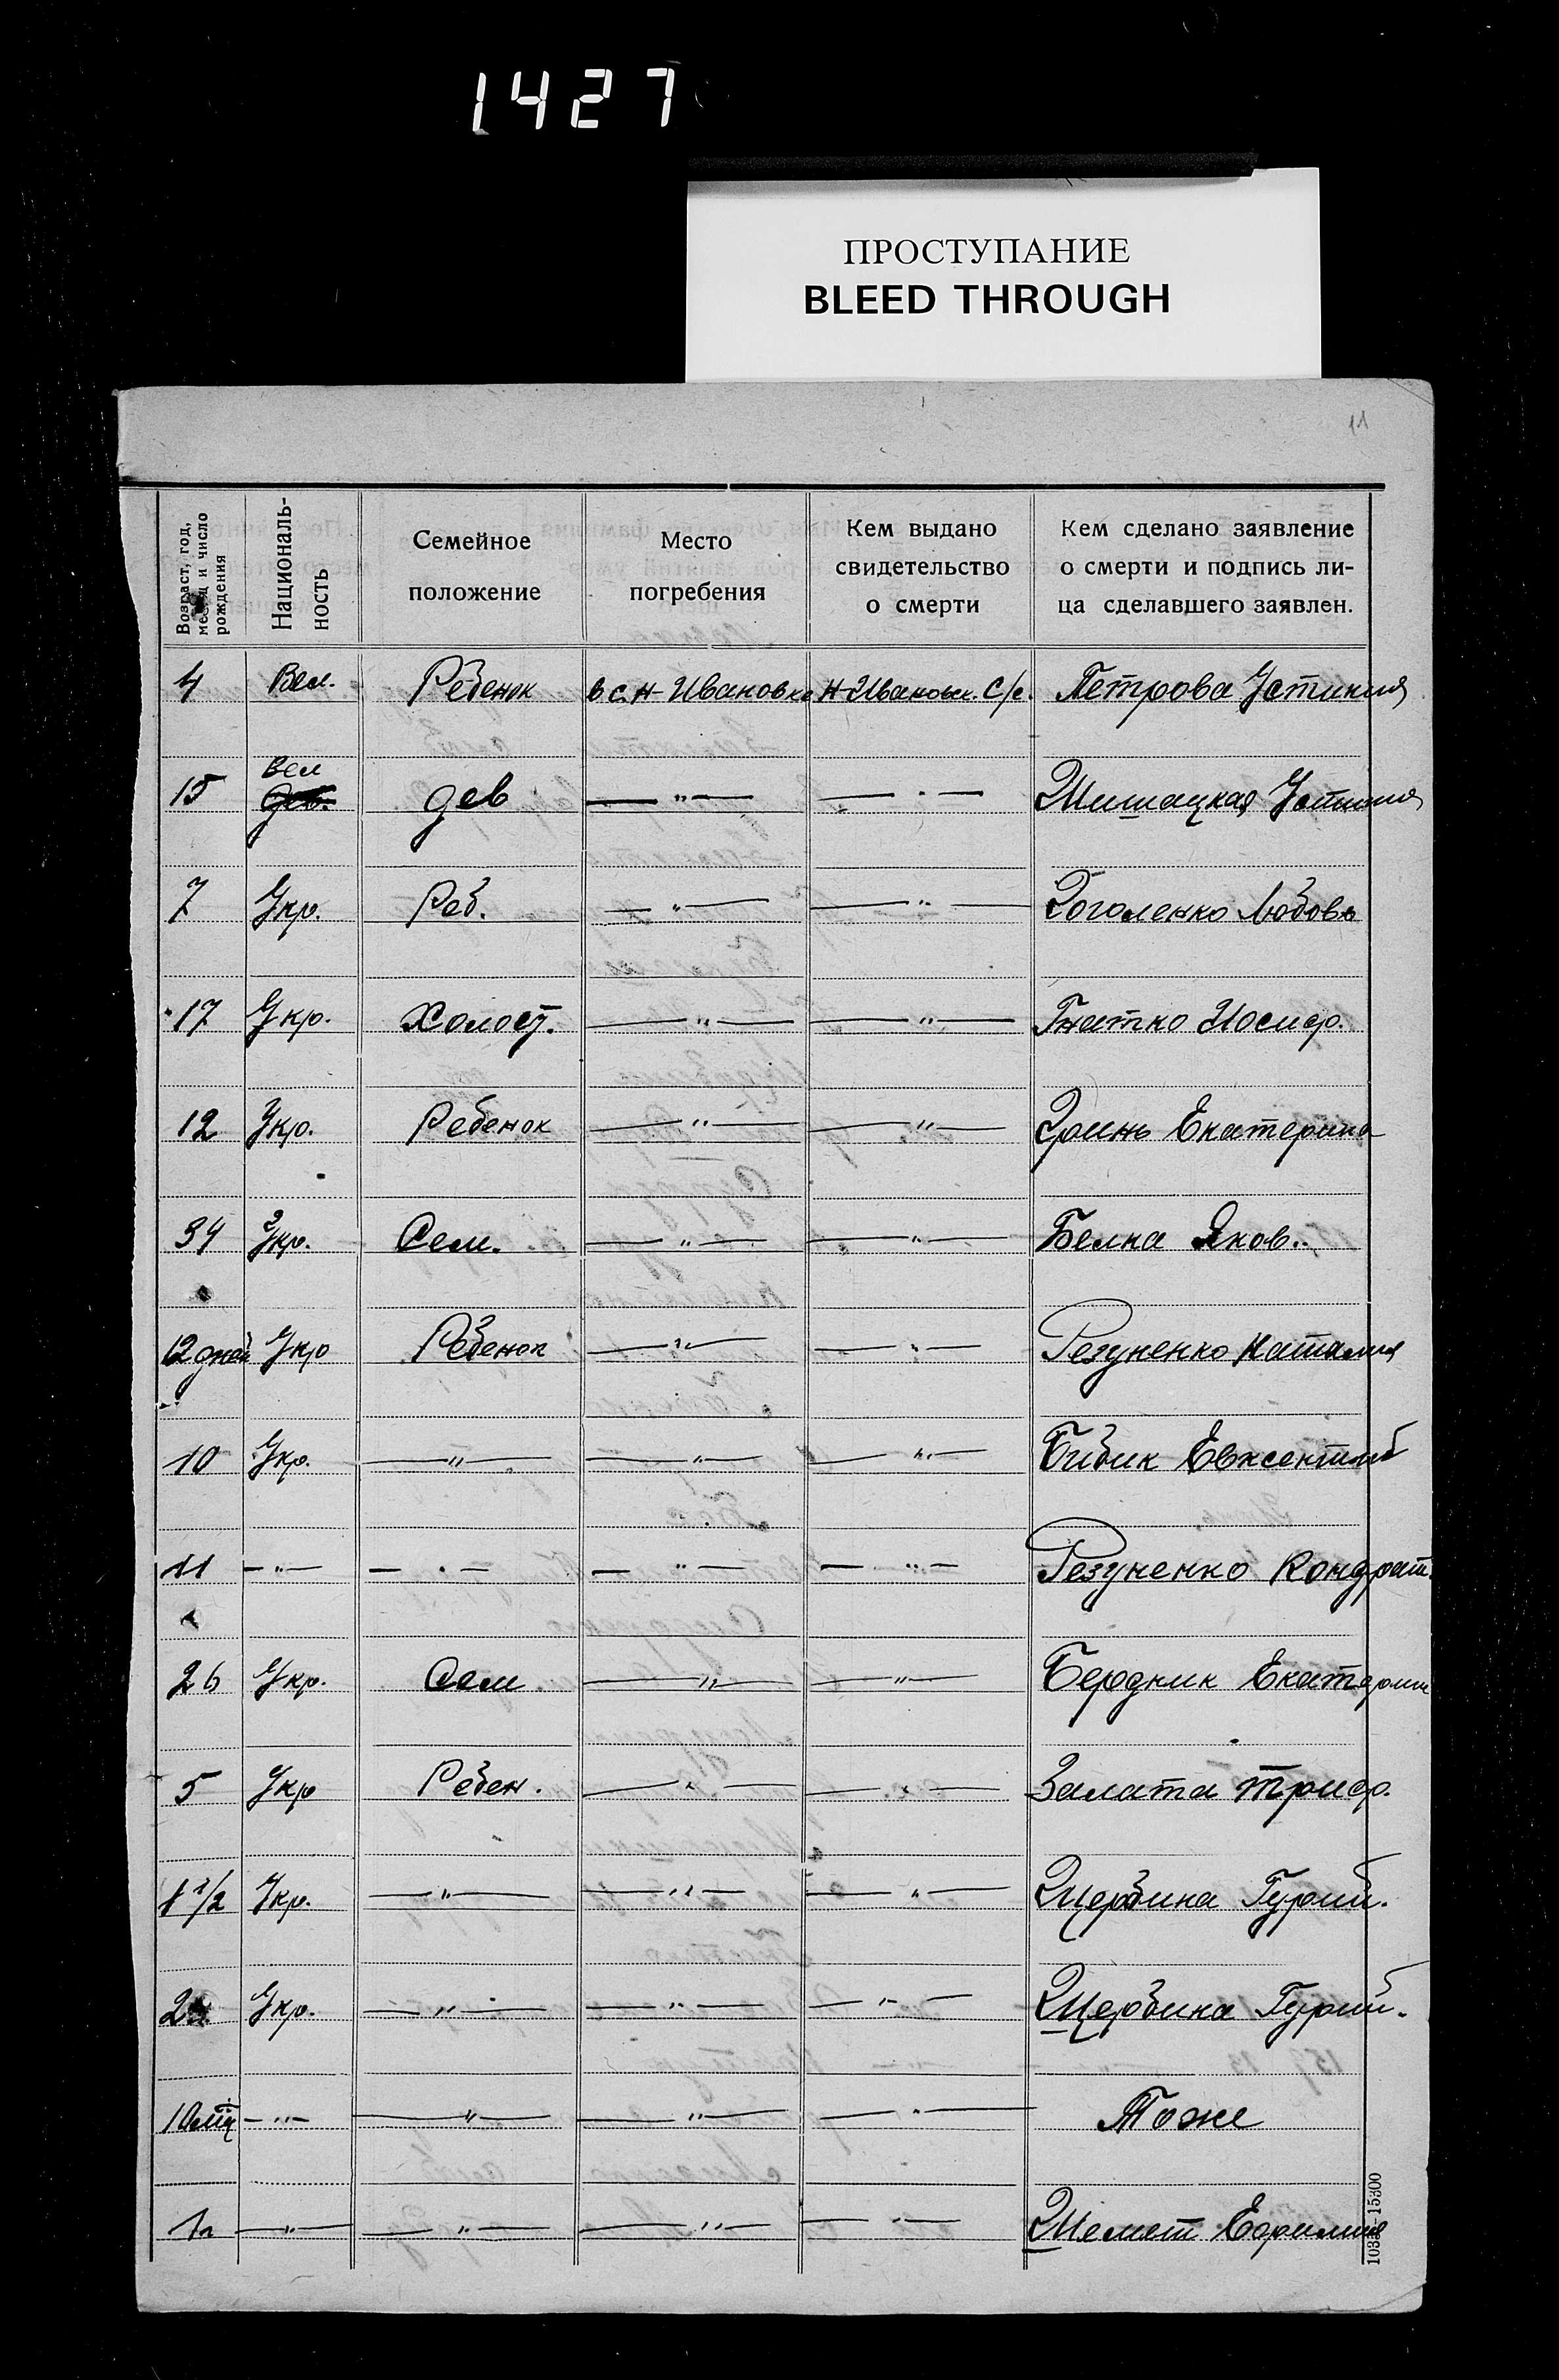 1427
ПРОСТУПАНИЕ
BLEED THROUGH
11
Возраст, год, месяц и число рождения
Националь-
ность
Семейное
положение
Место
погребения
Кем выдано
свидетельство
о смерти
Кем сделано заявление
о смерти и подпись ли-
ца сделавшего заявлен.
4 Вел. Ребенок в с. Н-Ивановке Н-Ивановск. С/с. Петрова Устиния
Вел
15 дев — " — — " — Шишацкая Устиния
7 Укр. Реб. — " — — " — Гоголенко Любовь
17 Укр. Холост. — " — — " — Гнатко Иосиф.
12 Укр. Ребенок — " — — " — Гринь Екатерина
34 Укр. Сем. — " — — " — Белка Яков.
12 дней Укр Ребенок — " — — " — Резуненко Наталия
10 Укр. — " — — " — — " — Бибик Евксентий
11 — " — — " — — " — — " — Резуненко Кондрат.
26 Укр. Сем — " — — " — Бердник Екатерин
5 Укр Ребен. — " — — " — Залата Триф.
1 1/2 Укр. — " — — " — — " — Щербина Гурий.
2 Укр. — " — — " — — " — Щербина Гурий.
10 — " — — " — — " — — " — Тоже
1 — " — — " — — " — — " — Шемет Ефимия
15300